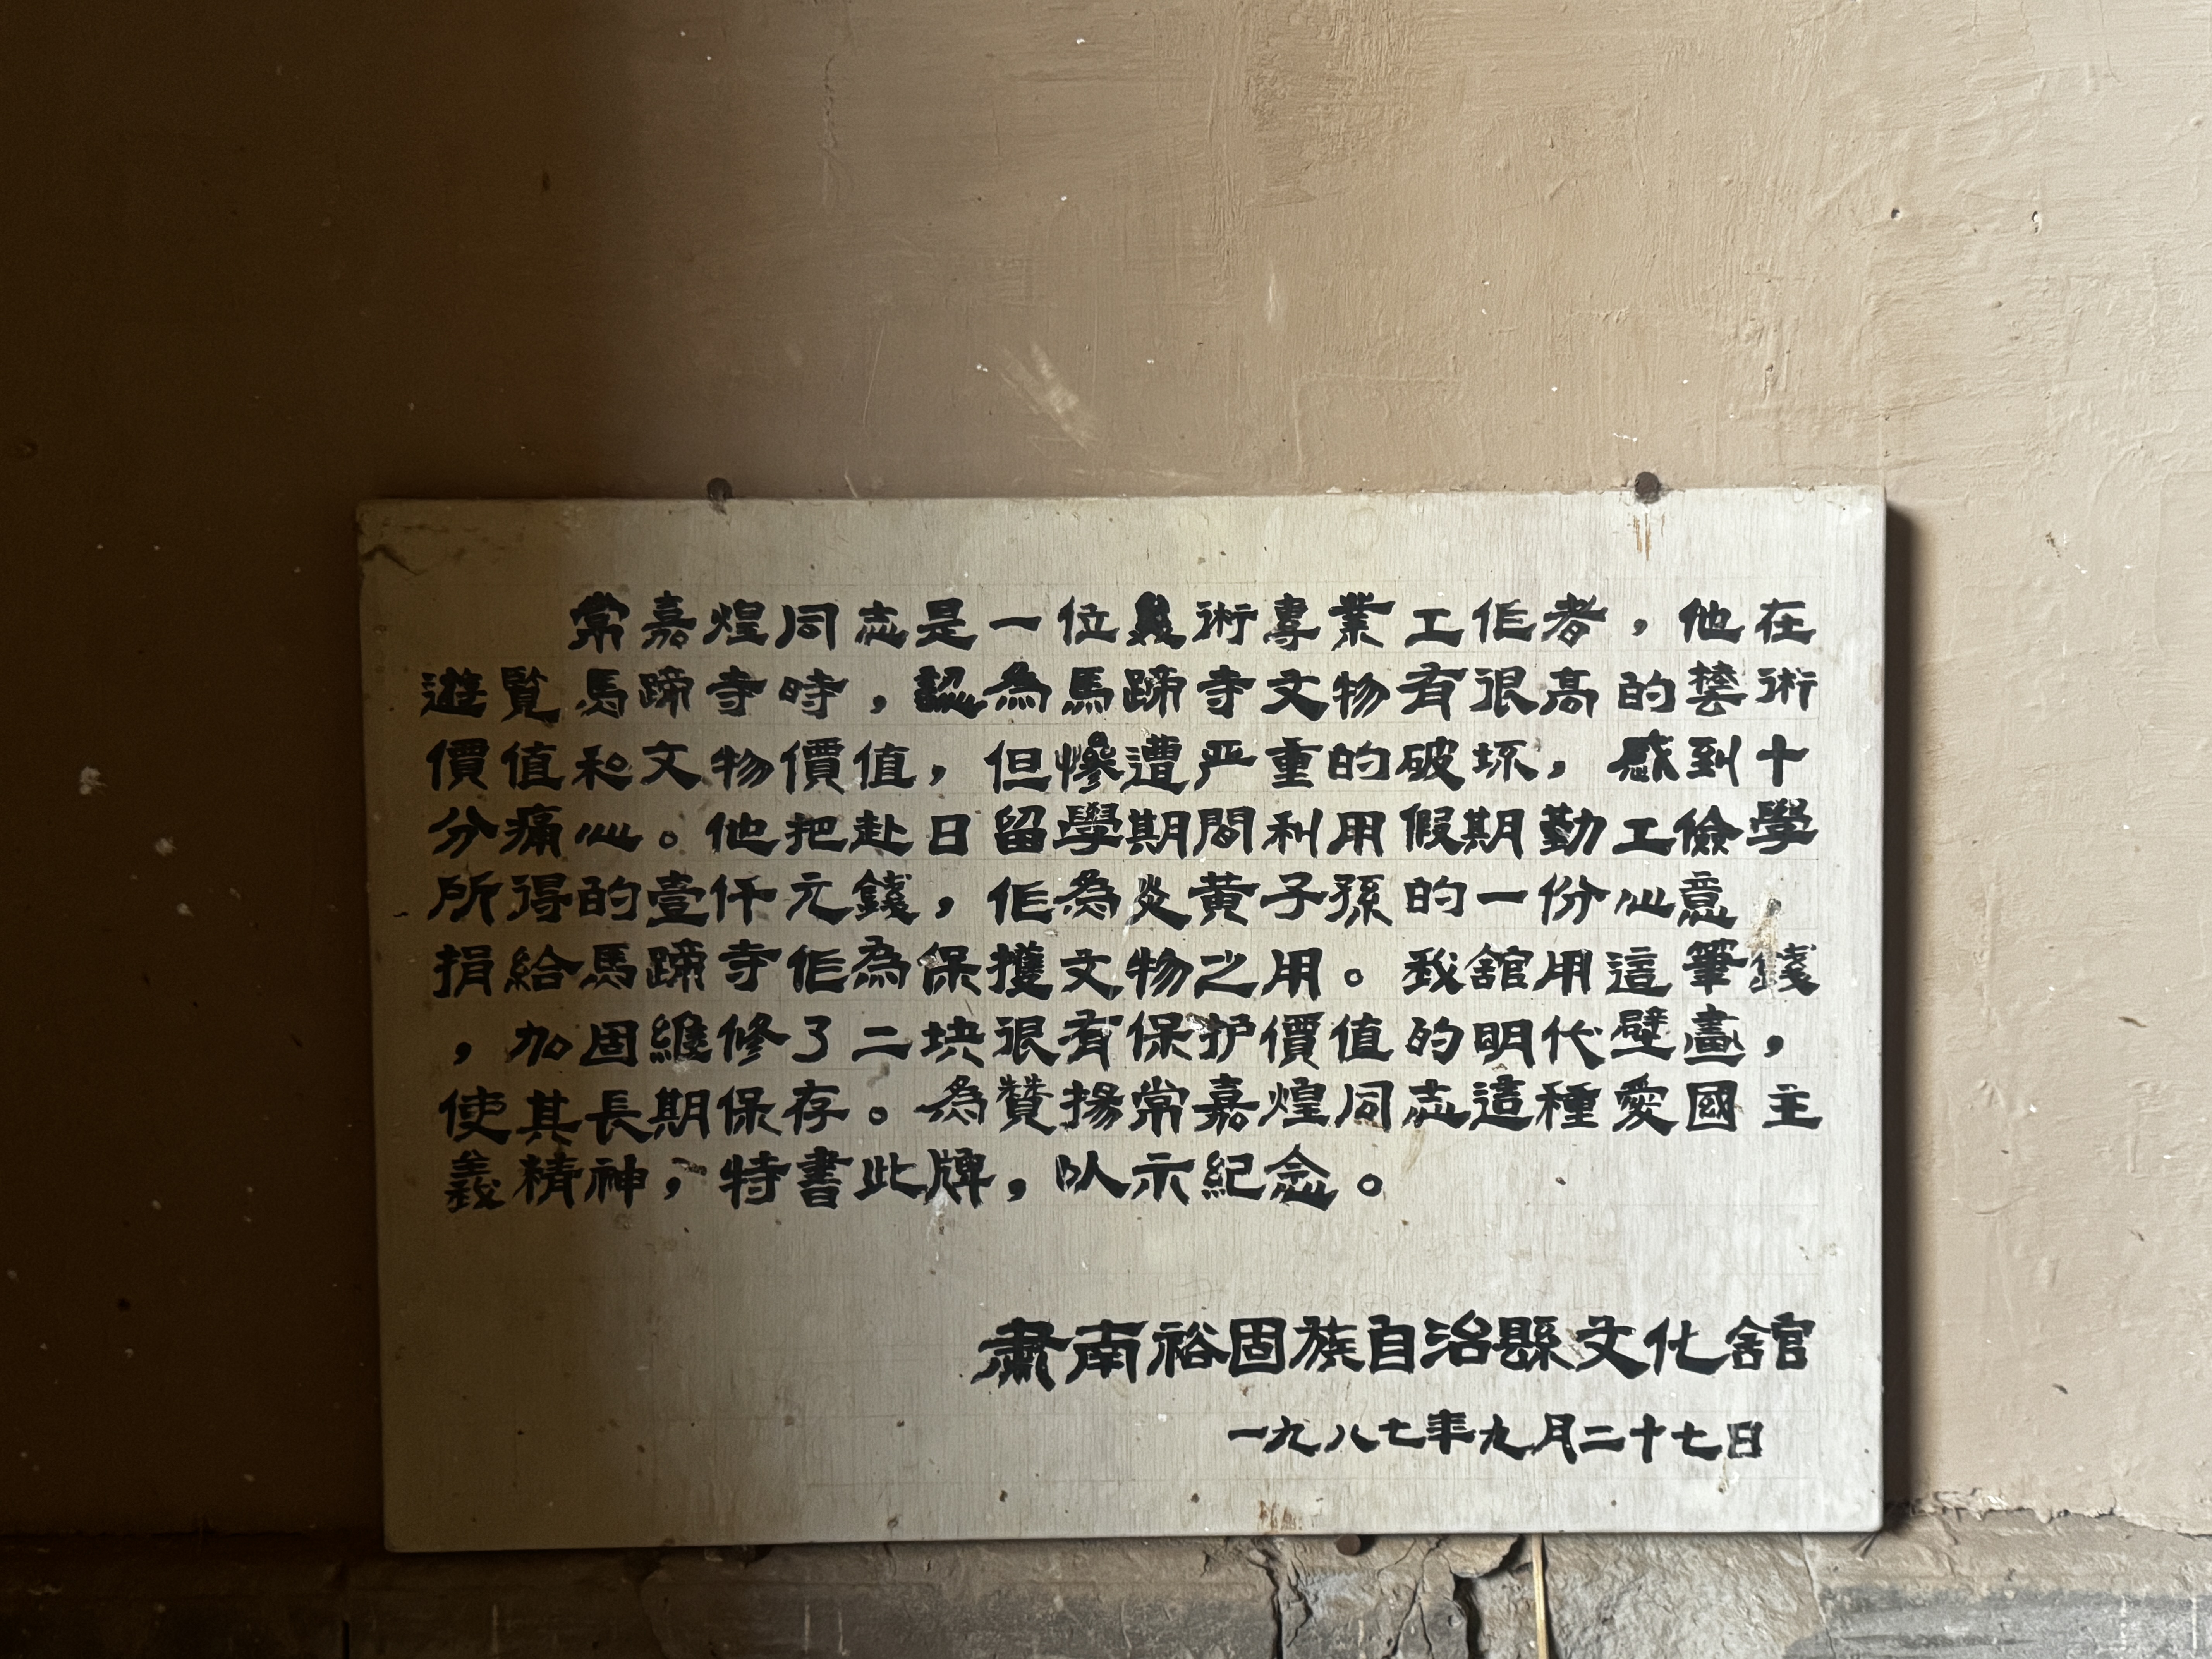 常嘉煌同志是一位美術專業工作者，他在
遊覧馬蹄寺時，認為馬蹄寺文物有很高的藝術
價值和文物價值，但慘遭严重的破坏，感到十
分痛心。他把赴日留學期間利用假期勤工儉學
所得的壹仟元錢，作為炎黄子孫的一份心意
捐給馬蹄寺作為保擭文物之用。我舘用這筆錢
，加固維修了二块很有保护價值的明代壁畫，
使其長期保存。為贊揚常嘉煌同志這種愛國主
義精神，特書此牌，以示紀念。
肅南裕固族自治縣文化舘
一九八七年九月二十七日